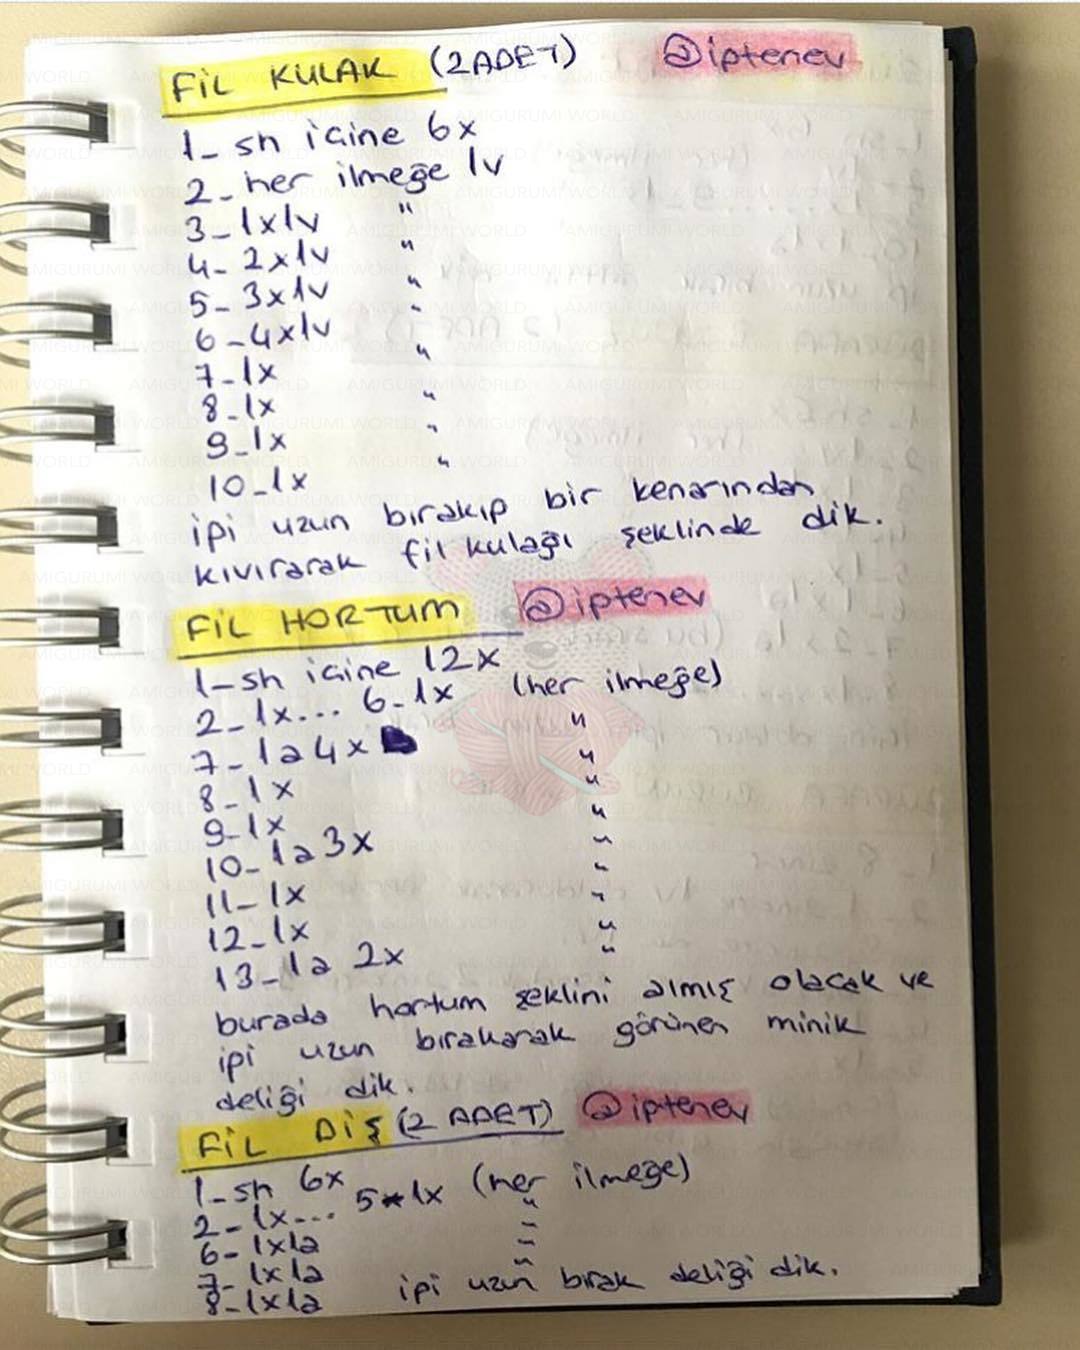 FİL KULAK (2 ADET) @iptenev
1_ sh içine 6x
2_ her ilmeğe 1v
3_ 1x1v "
4- 2x1v "
5- 3x1v "
6-4x1v "
7-1x "
8-1x "
9-1x "
10-1x "
ipi uzun bırakıp bir kenarından
kıvırarak fil kulağı şeklinde dik.
FİL HORTUM @iptenev
1-sh içine 12x
2_ 1x... 6-1x (her ilmeğe)
7_ 1a4x "
8-1x "
9-1x "
10-1a3x "
11-1x "
12-1x "
13-1a 2x "
burada hortum şeklini almış olacak ve
ipi uzun bırakarak görünen minik
deliği dik.
FİL DİŞ (2 ADET) @iptenev
1-sh 6x
2- 1x... 5-1x (her ilmeğe)
6- 1x1a "
7- 1x1a "
8-1x1a " ipi uzun bırak deliği dik.
AMIGURUMI WORLD